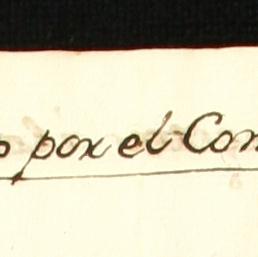 o por el Con